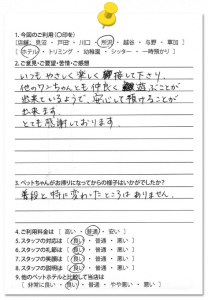 1.今回のご利用(○印を)
[店舗: 見沼 ・ 戸田 ・ 川口 ・ 所沢 ・ 越谷 ・ 与野 ・ 草加 ]
[ホテル ・ トリミング ・ 幼稚園 ・ シッター ・ 一時預かり ]
2.ご意見・ご要望・苦情・ご感想
いつも やさしく 楽しく 接して下さり、
他のワンちゃんとも 仲良く 遊ぶことが
出来ているようで、安心して預けることが
出来ます。
とても感謝しております。
3.ペットちゃんがお帰りになってからの様子はいかがでしたか?
普段と特に変わったところはありません。
4.ご利用料金は [ 高い ・ 普通 ・ 安い ]
5.スタッフの対応は [ 良い ・ 普通 ・ 悪い ]
6.スタッフの笑顔は [ 良い ・ 普通 ・ 悪い ]
7.スタッフの返事は [ 良い ・ 普通 ・ 悪い ]
8.スタッフの説明は [ 良い ・ 普通 ・ 悪い ]
9.他のペットホテルと比較して当店は
[ 非常に良い ・ 良い ・ 普通 ・ やや悪い ・ 悪い ]